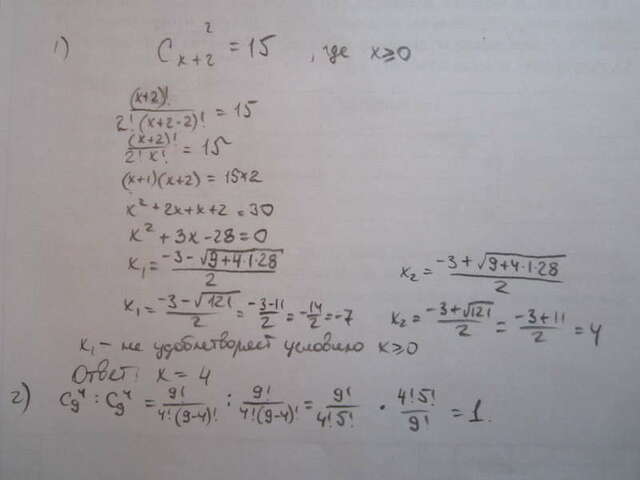 1) C²ₓ₊₂ = 15 , где x≥0
(x+2)! / 2!(x+2-2)! = 15
(x+2)! / 2! x! = 15
(x+1)(x+2) = 15×2
x² + 2x + x + 2 = 30
x² + 3x - 28 = 0
x₁ = -3 - √(9+4·1·28) / 2 x₂ = -3 + √(9+4·1·28) / 2
x₁ = -3 - √121 / 2 = -3-11 / 2 = -14 / 2 = -7 x₂ = -3 + √121 / 2 = -3+11 / 2 = 4
x₁ - не удовлетворяет условию x≥0
Ответ: x = 4
2) C₉⁴ : C₉⁴ = 9! / 4!(9-4)! : 9! / 4!(9-4)! = 9! / 4!5! · 4!5! / 9! = 1.